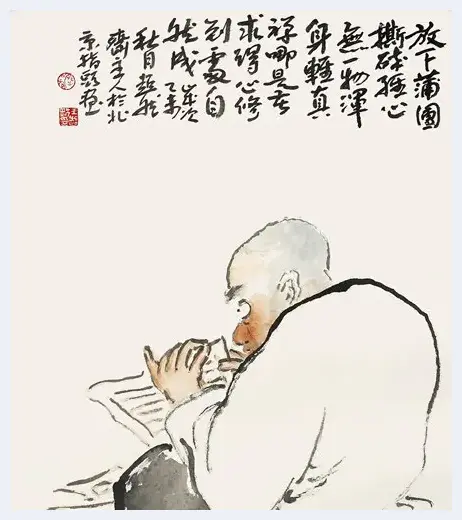 放下蒲團
撕破經心
無一物渾
身輕真
禪哪是苦
求得心修
到處自
然成歲次
乙未
秋月
齋主人於北
京指頭画